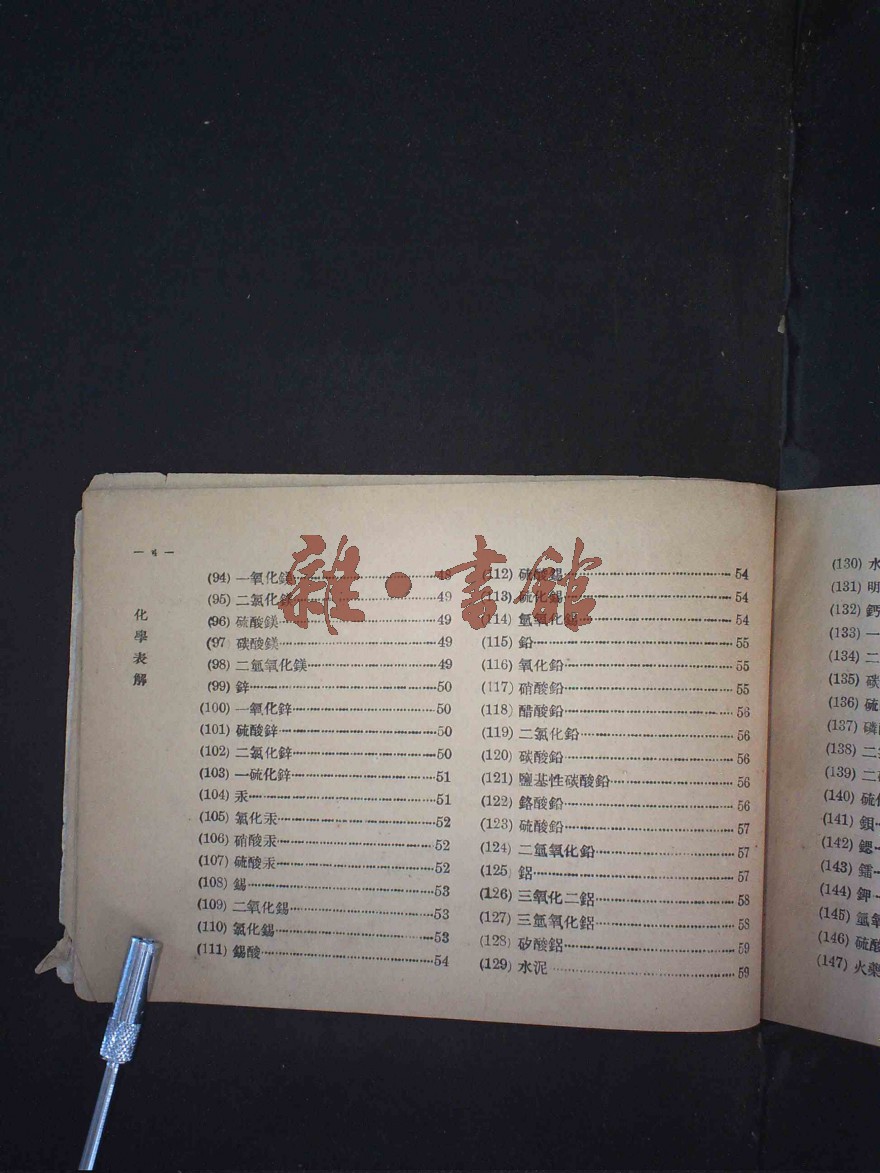 — 4 —
化學表解
(94) 一氧化鎂 48
(95) 二氯化鎂 49
(96) 硫酸鎂 49
(97) 碳酸鎂 49
(98) 二氫氧化鎂 49
(99) 鋅 50
(100) 一氧化鋅 50
(101) 硫酸鋅 50
(102) 二氯化鋅 50
(103) 一硫化鋅 51
(104) 汞 51
(105) 氯化汞 52
(106) 硝酸汞 52
(107) 硫酸汞 52
(108) 錫 53
(109) 二氧化錫 53
(110) 氯化錫 53
(111) 錫酸 54
(112) 硫酸錫 54
(113) 硫化錫 54
(114) 氫氧化錫 54
(115) 鉛 55
(116) 氧化鉛 55
(117) 硝酸鉛 55
(118) 醋酸鉛 56
(119) 二氯化鉛 56
(120) 碳酸鉛 56
(121) 鹽基性碳酸鉛 56
(122) 鉻酸鉛 56
(123) 硫酸鉛 57
(124) 二氫氧化鉛 57
(125) 鋁 57
(126) 三氧化二鋁 58
(127) 三氫氧化鋁 58
(128) 矽酸鋁 59
(129) 水泥 59
(130) 水
(131) 明
(132) 鈣
(133) 一
(134) 二
(135) 碳
(136) 硫
(137) 磷
(138) 二
(139) 二
(140) 硫
(141) 鋇
(142) 鍶
(143) 鐳
(144) 鉀
(145) 氫氧
(146) 硫酸
(147) 火藥
雜·書館